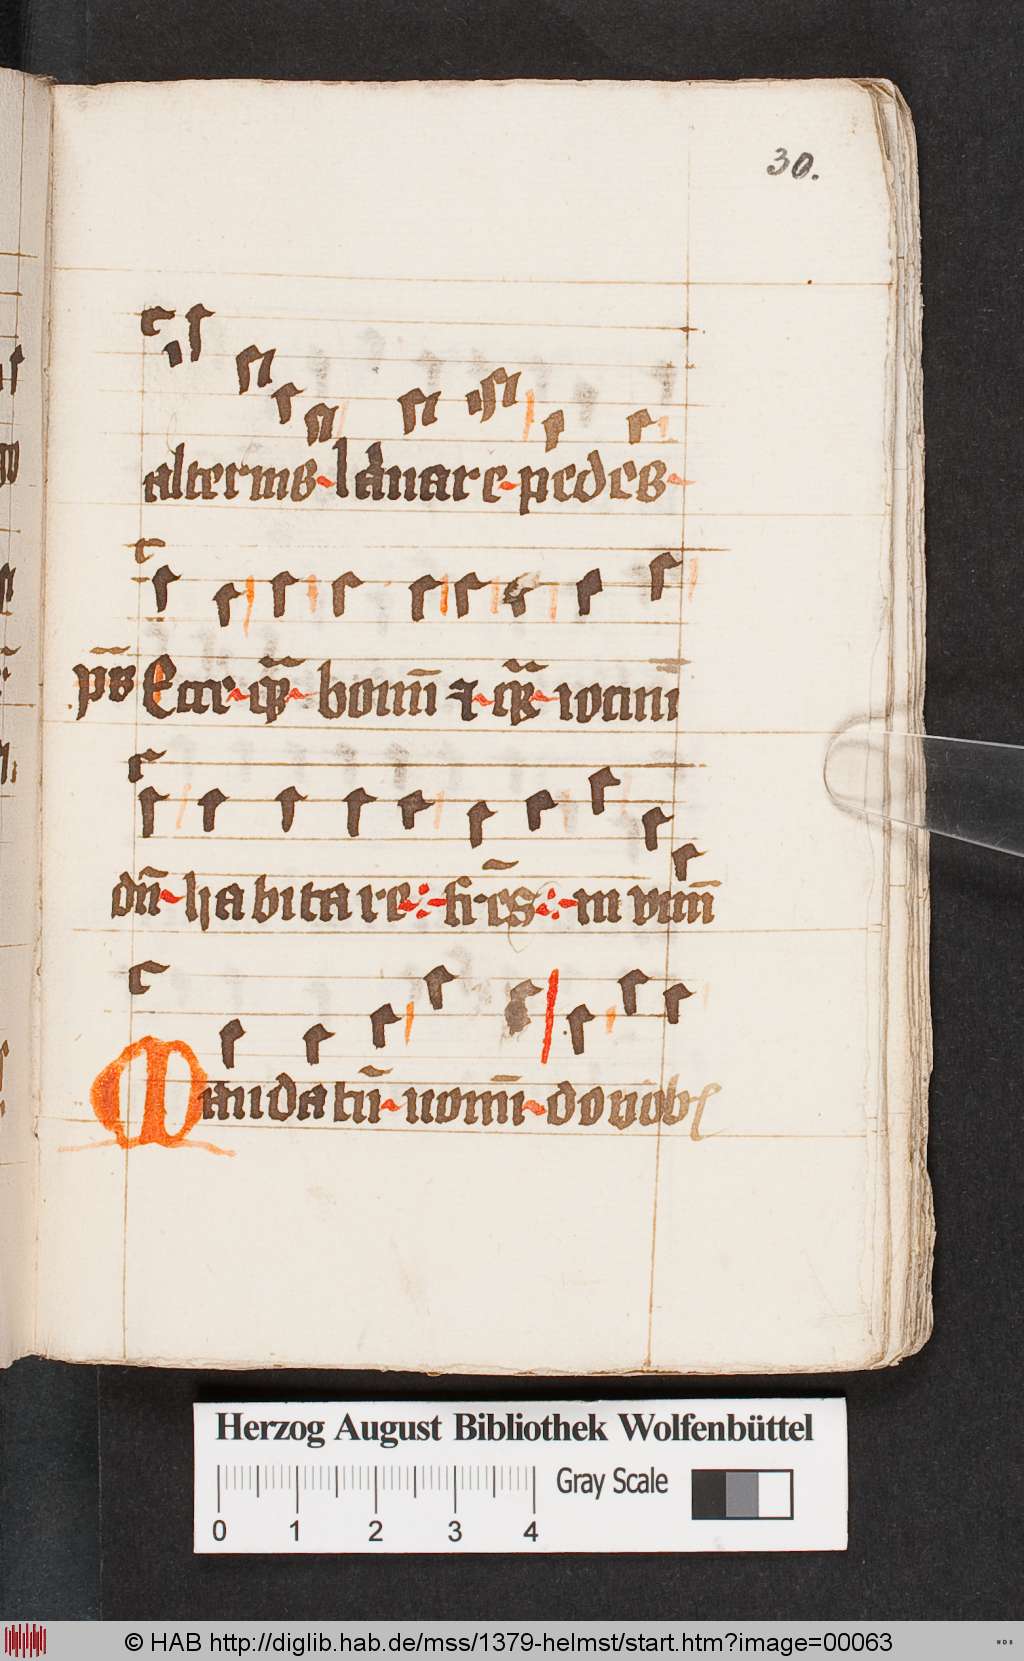 30.
alternis lauare pedes
ps̄ Ecce q̄m̄ bonū et q̄m̄ iocūm
dn̄ habitare frēs in vnū
Mandatū nouū do vob
Herzog August Bibliothek Wolfenbüttel
Gray Scale
0 1 2 3 4
© HAB http://diglib.hab.de/mss/1379-helmst/start.htm?image=00063